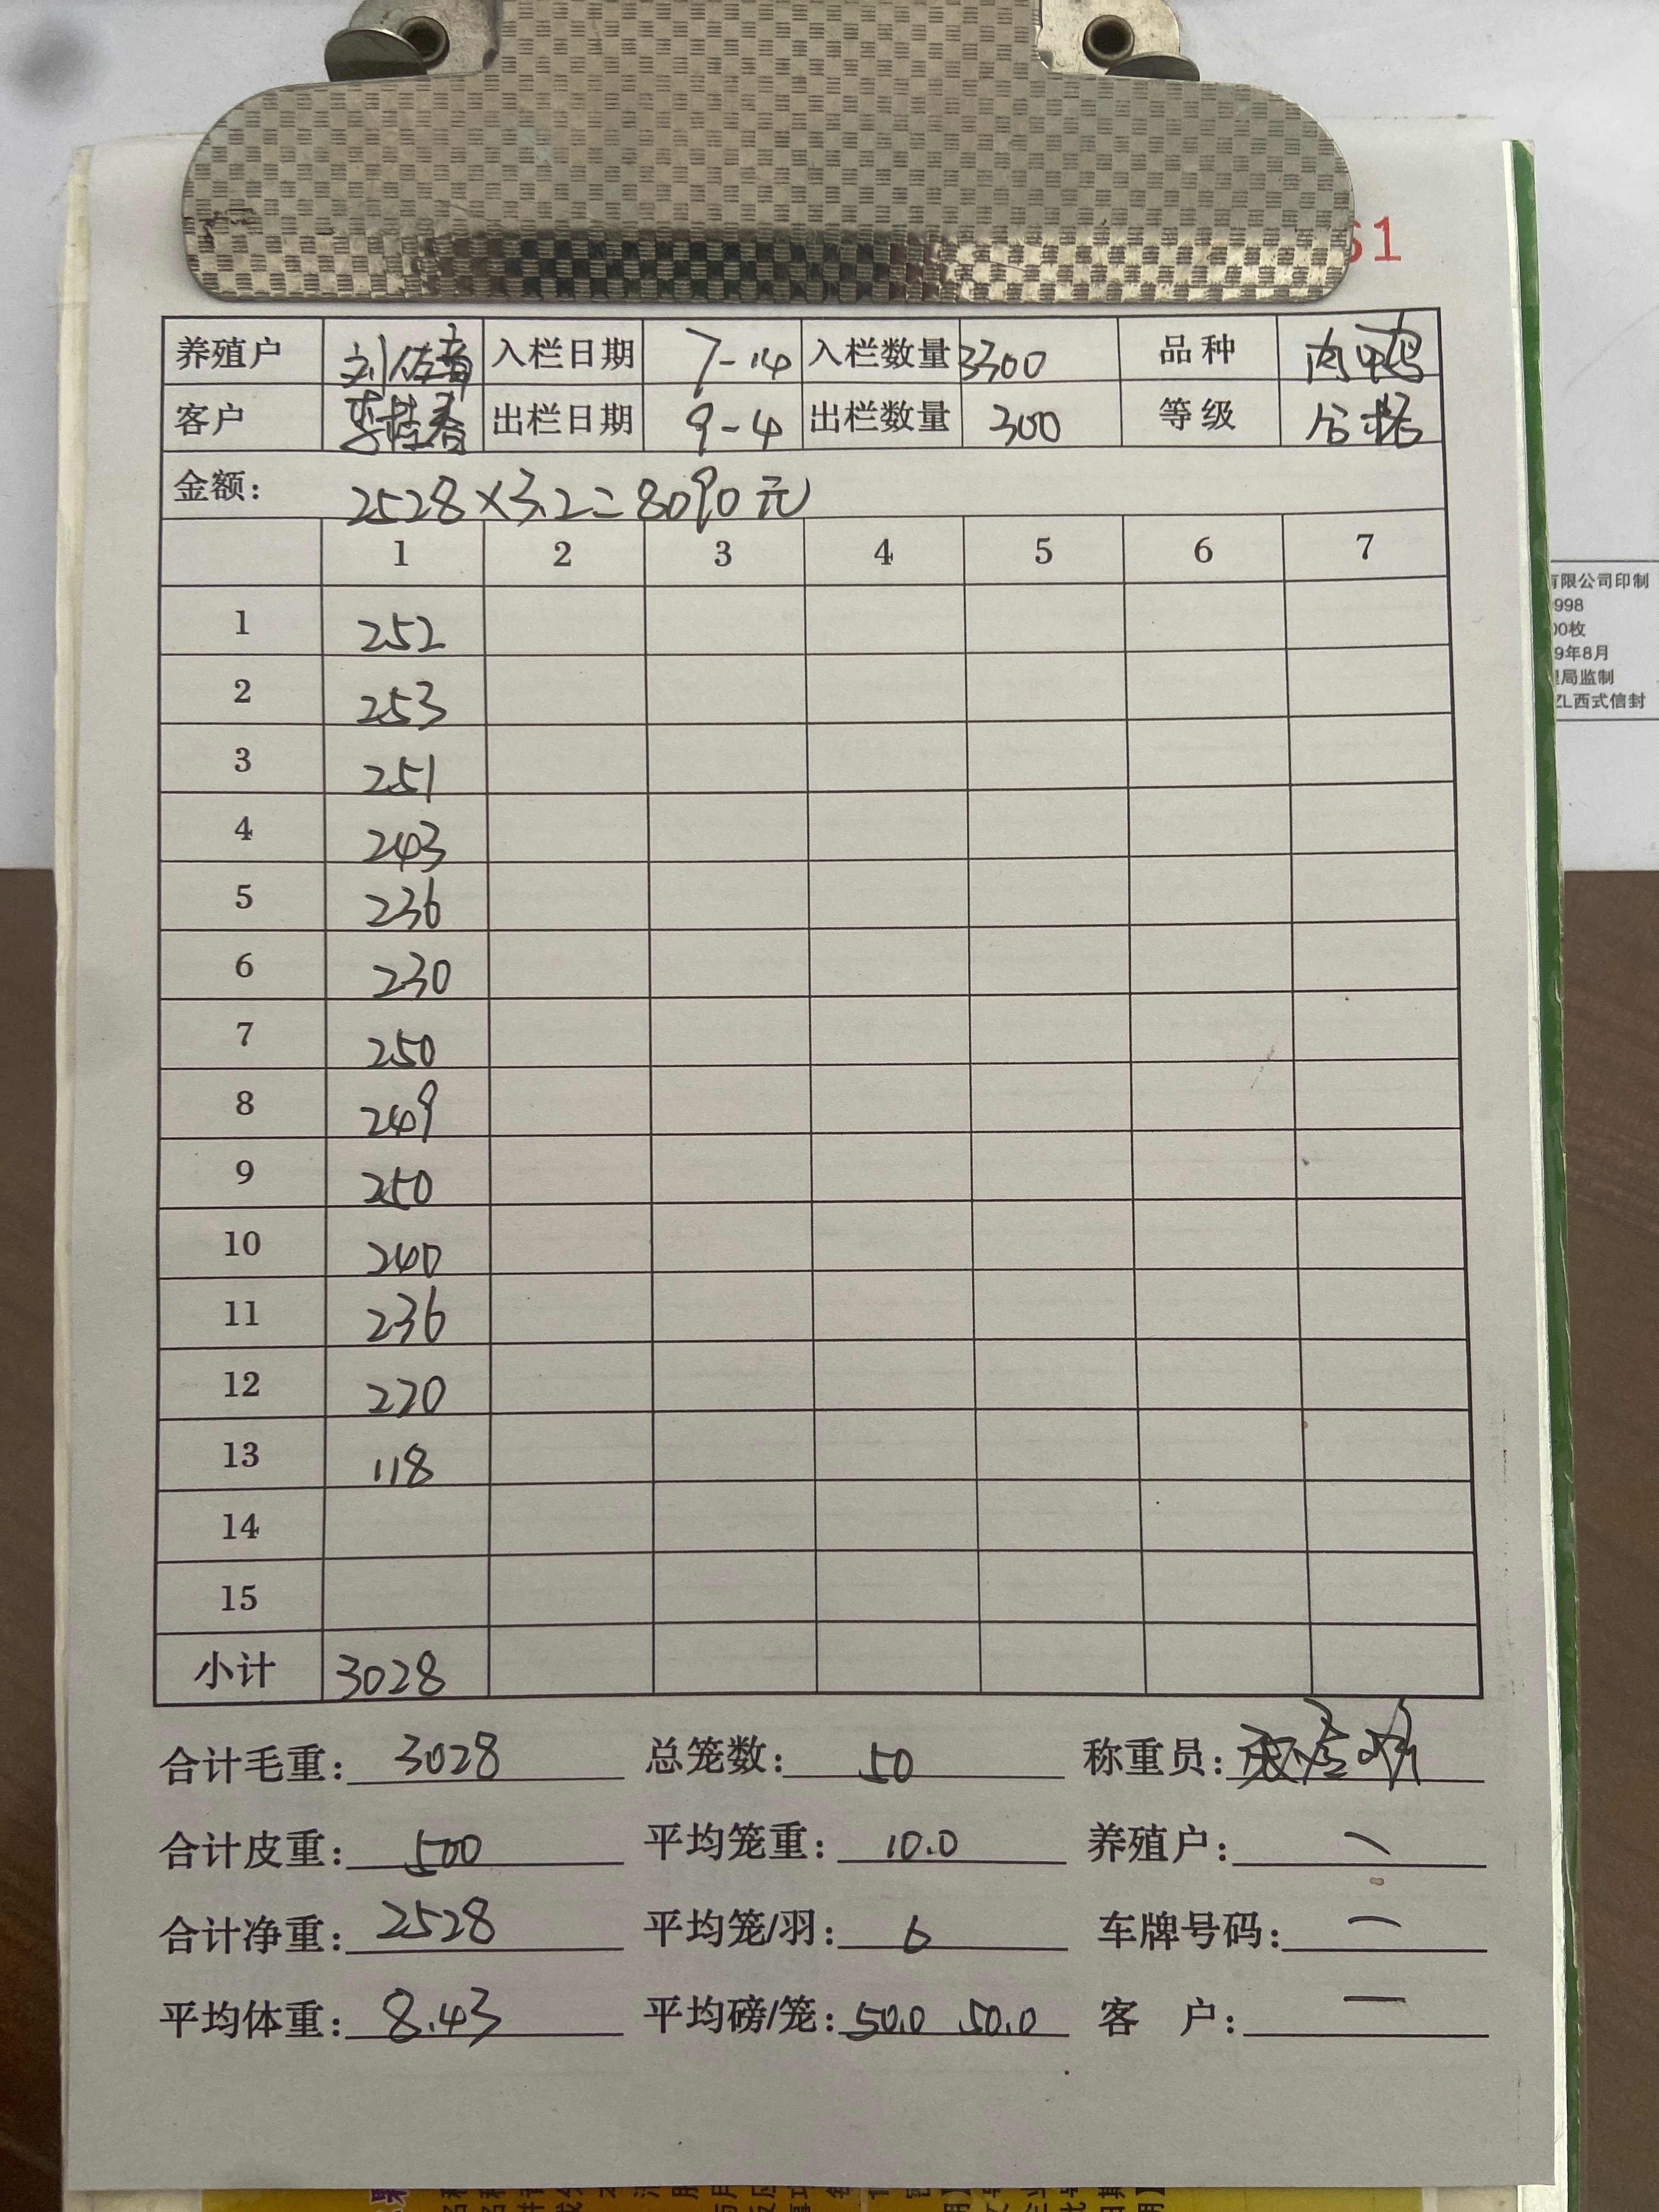 61
养殖户 刘佐章 入栏日期 7-14 入栏数量 3300 品种 肉鸭
客户 李桂香 出栏日期 9-4 出栏数量 300 等级 合格
金额: 2528×3.2=8090元
1 2 3 4 5 6 7
1 252
2 253
3 251
4 243
5 236
6 230
7 250
8 249
9 250
10 240
11 236
12 220
13 118
14
15
小计 3028
合计毛重: 3028 总笼数: 50 称重员:
合计皮重: 500 平均笼重: 10.0 养殖户:
合计净重: 2528 平均笼/羽: 6 车牌号码: 一
平均体重: 8.43 平均磅/笼: 50.0 50.0 客 户: 一
有限公司印制
998
00枚
9年8月
局监制
ZL西式信封